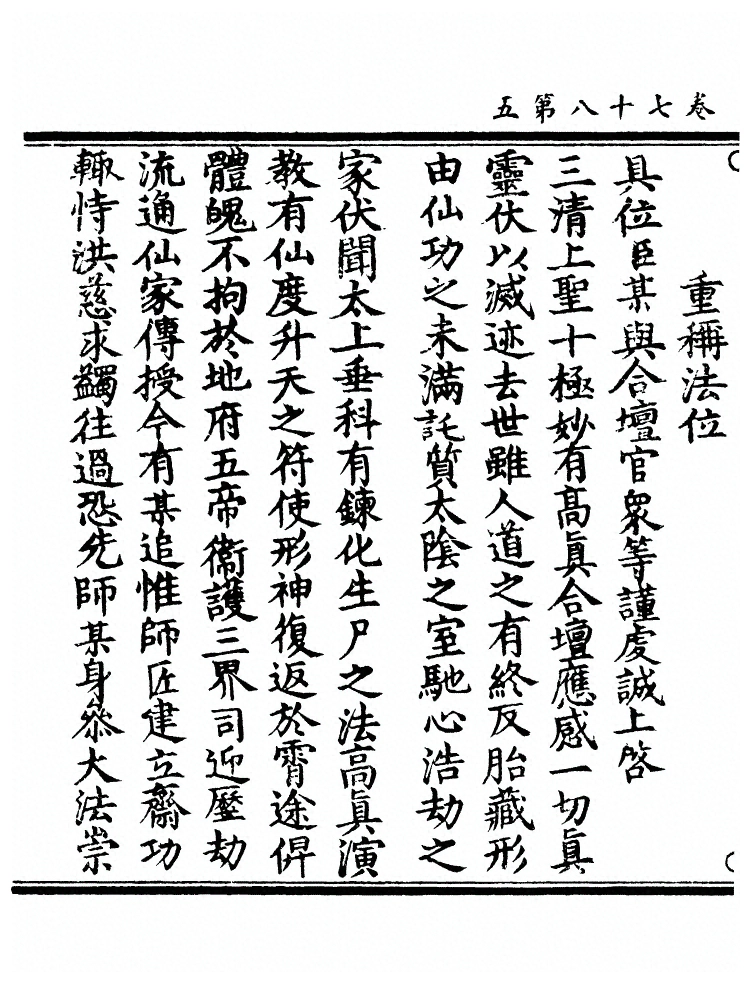 卷七十八第五
重稱法位
具位臣某與合壇官衆等謹虔誠上啓
三清上聖十極妙有髙眞合壇應感一切眞
靈伏以滅迹去世雖人道之有終反胎藏形
由仙功之未滿託質太陰之室馳心浩劫之
家伏聞太上垂科有鍊化生尸之法高眞演
教有仙度升天之符使形神復返於霄途俾
體魄不拘於地府五帝衞護三界司迎歷劫
流通仙家傳授今有某追惟師匠建立齋功
輙恃洪慈求蠲往過恐先師某身叅大法崇